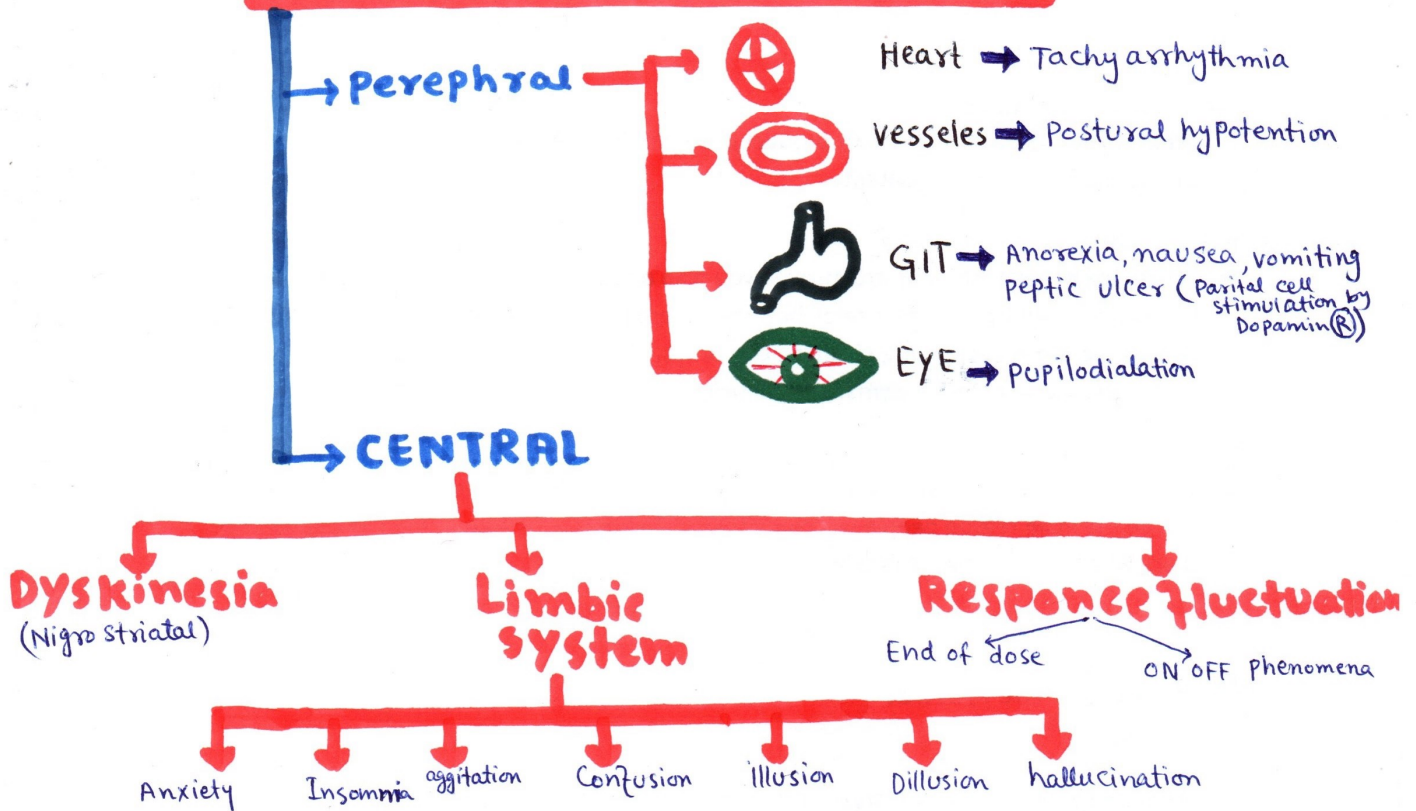 Perephral
Heart → Tachy arrhythmia
Vesseles → Postural hypotention
GIT → Anorexia, nausea, vomiting
peptic ulcer (Parital cell
stimulation by
Dopamin Ⓡ)
EYE → pupilodialation
CENTRAL
Dyskinesia
(Nigro Striatal)
Limbic
system
Responce fluctuation
End of dose
ON OFF phenomena
Anxiety
Insomnia
aggitation
Confusion
illusion
Dillusion
hallucination